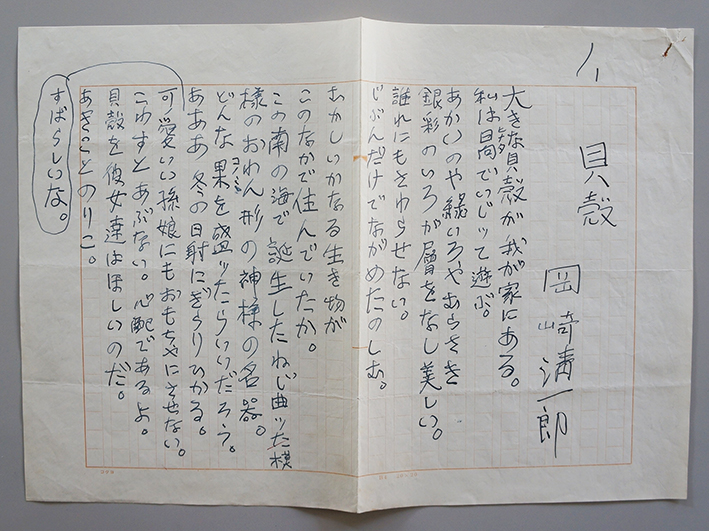 貝殻
岡崎清一郎
大きな貝殻が我が家にある。
私は時々日向でいじッて遊ぶ。
あかいのや緑いろやむらさき
銀彩のいろが層をなし美しい。
誰れにもさわらせない。
じぶんだけでながめたのしむ。
むかしいかなる生き物が
このなかで住んでいたか。
この南の海で誕生したねじ曲ッた模
様のおわん形の神様の名器。
どんな果を盛ッたらいいだろう。
コノミ
あああ 冬の日射にぎらりひかる。
可愛いい孫娘にもおもちゃにさせない。
こわすとあぶない。心配であるよ。
貝殻を彼女達はほしいのだ。
あきことのりこ。
すばらしいな。